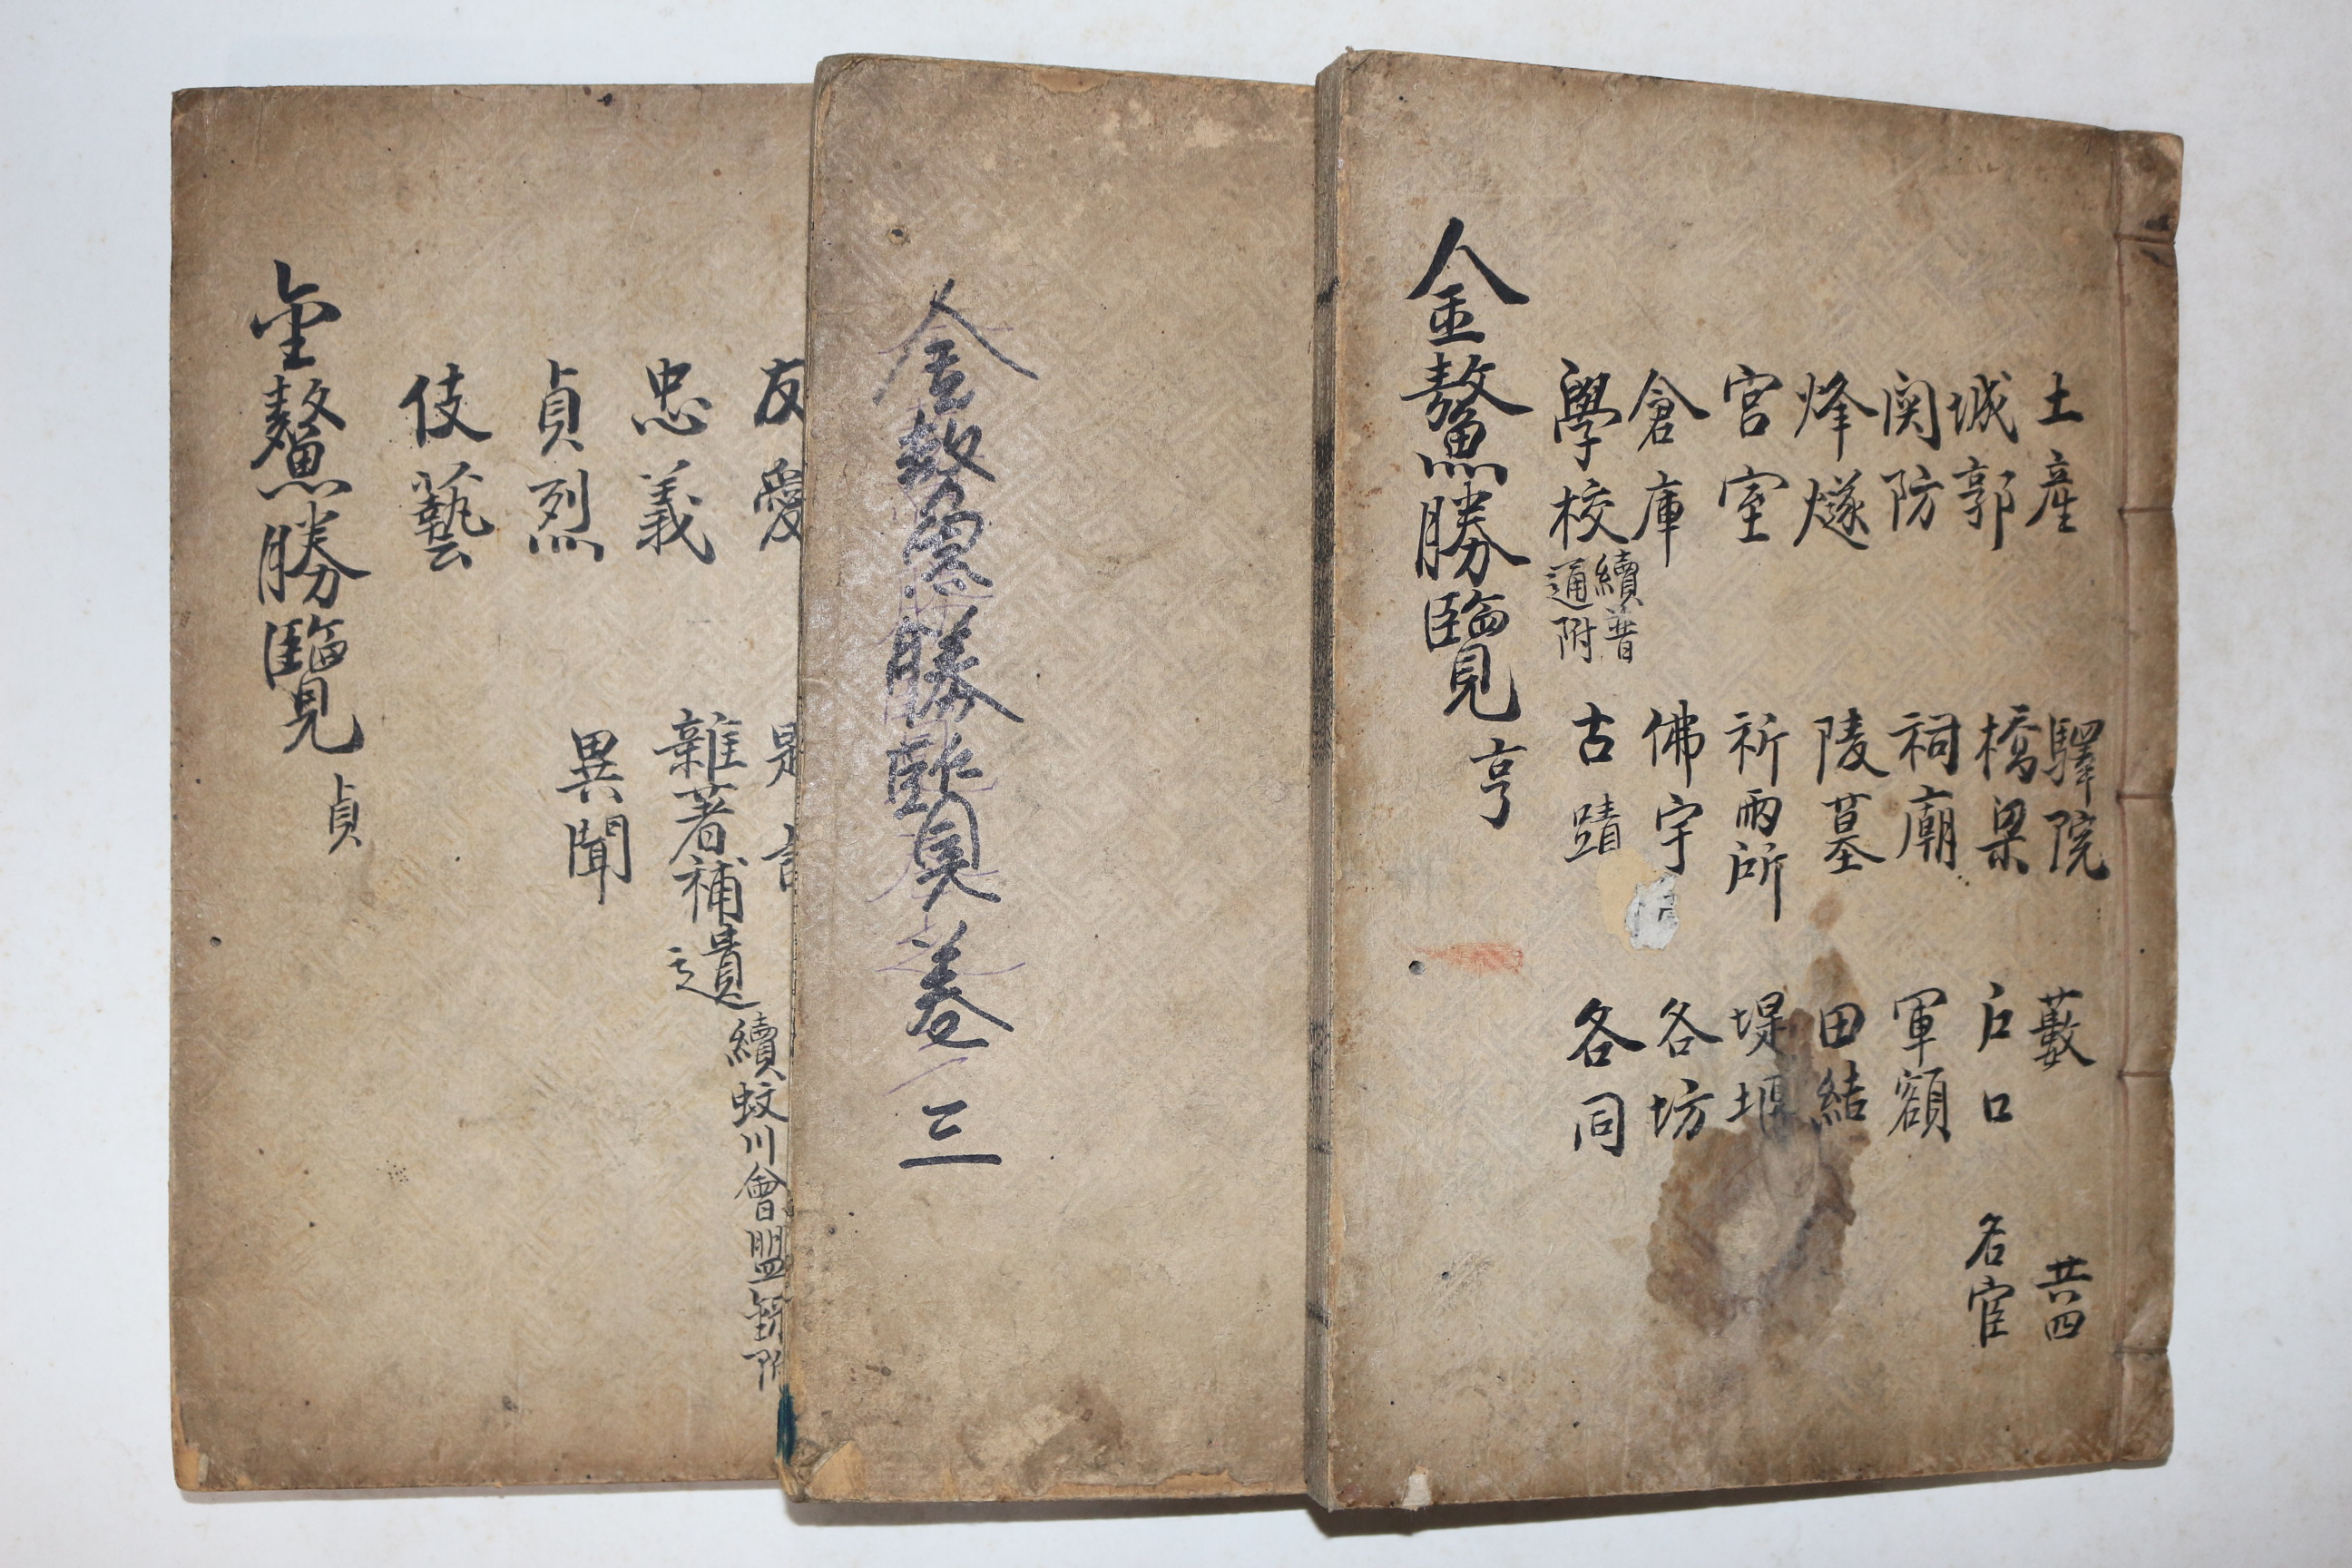 土産 驛院 藪 共四
城郭 橋梁 戶口 名宦
関防 祠廟 軍額
烽燧 陵墓 田結
宮室 祈雨所 堤堰
倉庫 佛宇 各坊
學校 續普通附 古蹟 各同
金鰲勝覽 亨
金鰲勝覽卷三
友愛
忠義 雜著補遺 續蚊川會盟
貞烈 異聞
伎藝
金鰲勝覽 貞